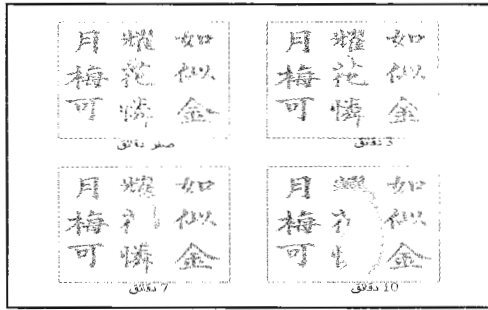 月 耀 如
梅 花 似
可 憐 金
صفر دقائق
月 耀 如
梅 花 似
可 憐 金
3 دقائق
月 耀 如
梅 似
可 憐 金
7 دقائق
月 如
梅 似
可 金
10 دقائق